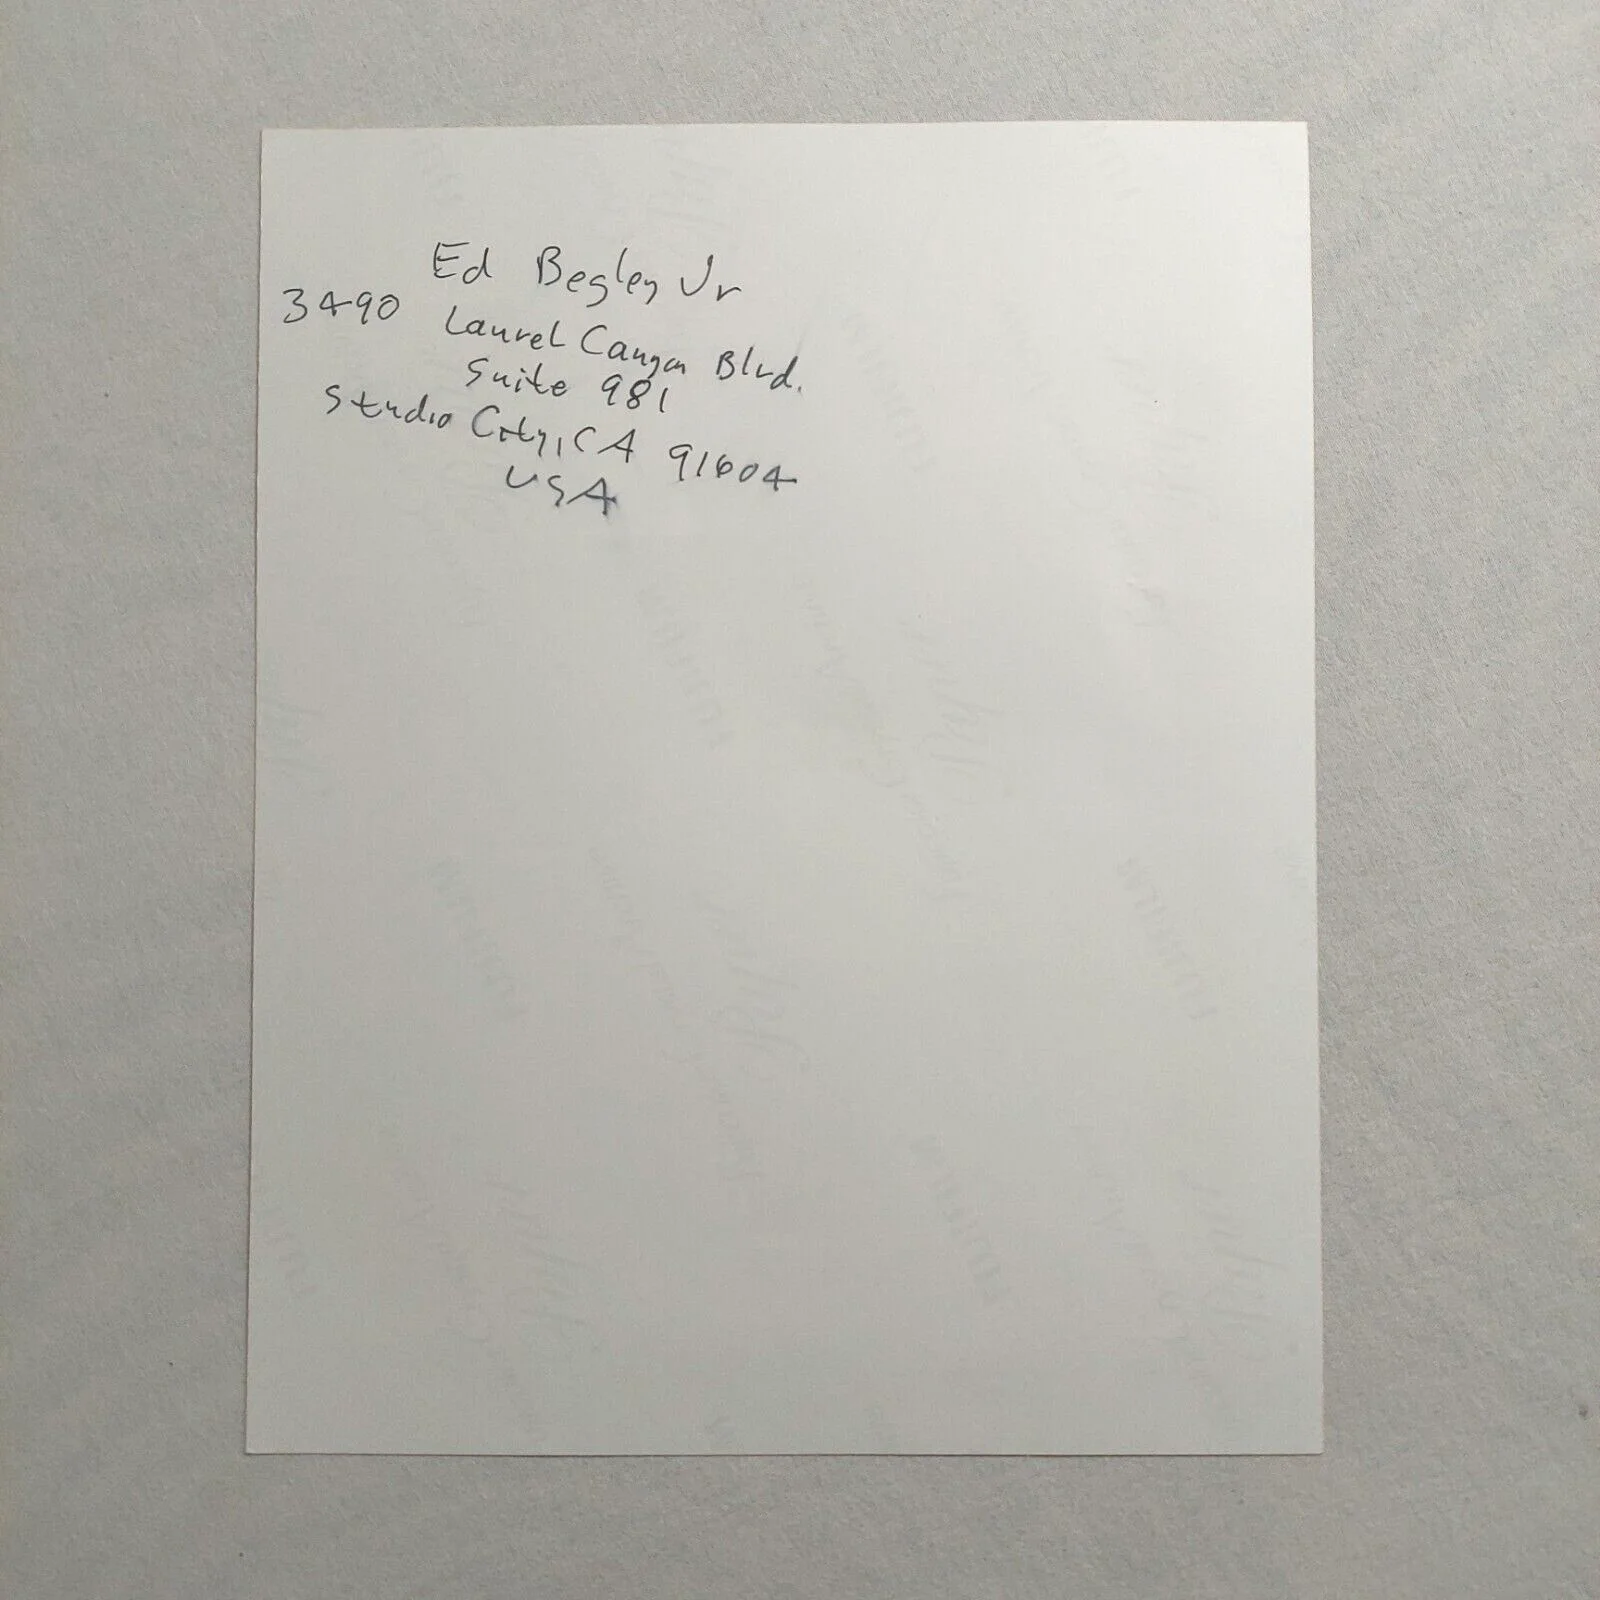 Ed Begley Jr
3490 Laurel Canyon Blvd.
Suite 981
Studio City, CA 91604
USA